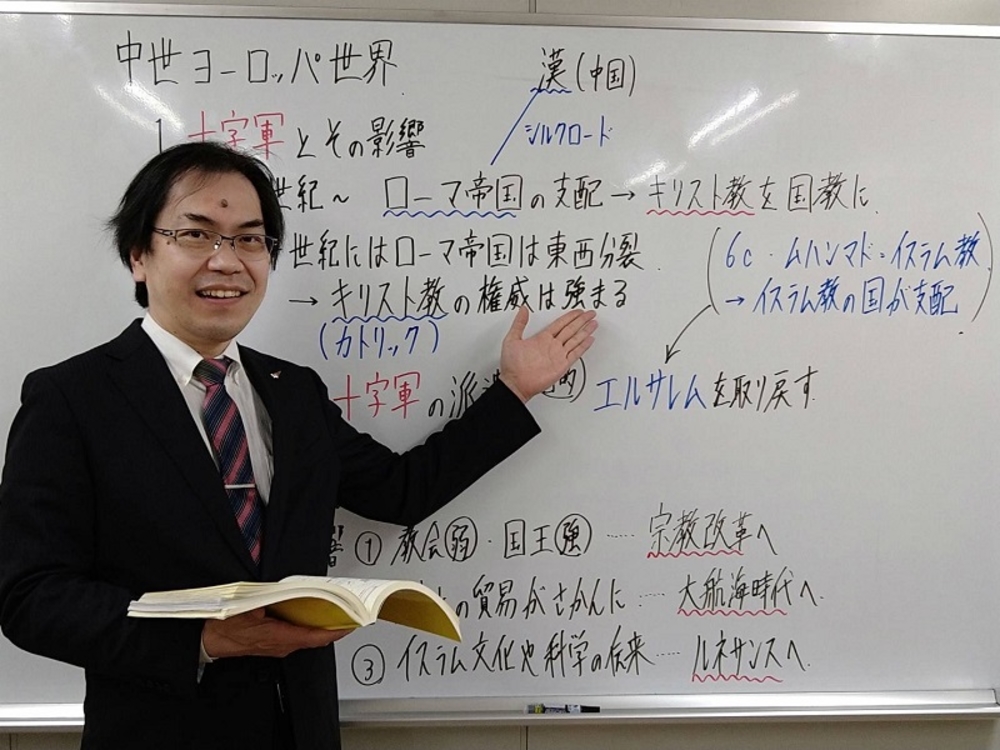 中世ヨーロッパ世界
漢(中国)
シルクロード
1 十字軍とその影響
世紀~ ローマ帝国の支配→キリスト教を国教に
世紀にはローマ帝国は東西分裂
→キリスト教の権威は強まる
(カトリック)
(6c・ムハンマド=イスラム教
→イスラム教の国が支配)
十字軍の派遣 エルサレムを取り戻す
① 教会弱・国王強……宗教改革へ
の貿易がさかんに…… 大航海時代へ
③ イスラム文化や科学の伝来…… ルネサンスへ